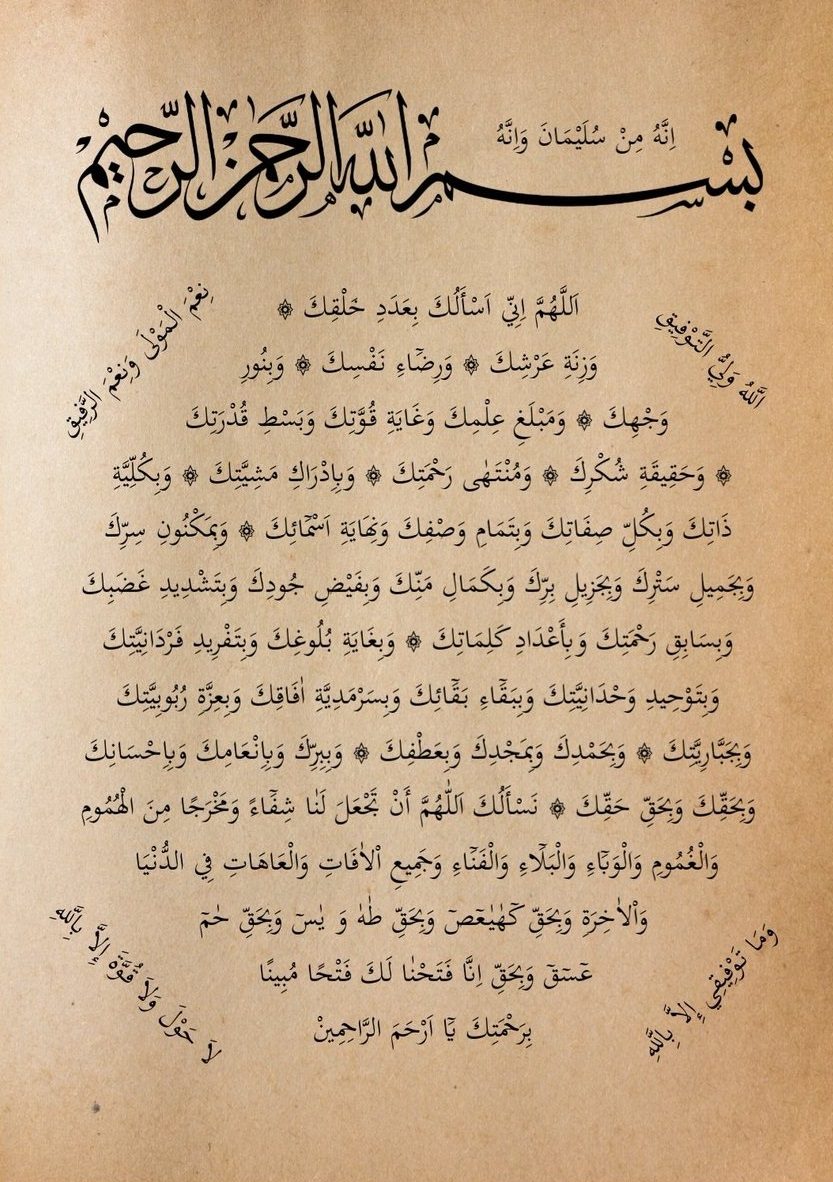 اِنَّهُ مِنْ سُلَيْمَانَ وَاِنَّهُ
بِسْمِ اللهِ الرَّحْمٰنِ الرَّحِيمِ
اَللّٰهُ وَلِيُّ التَّوْفِيقِ
نِعْمَ الْمَوْلَى وَنِعْمَ الرَّفِيقِ
اَللّٰهُمَّ اِنِّي اَسْأَلُكَ بِعَدَدِ خَلْقِكَ ۞
وَزِنَةِ عَرْشِكَ ۞ وَرِضَٓاءِ نَفْسِكَ ۞ وَبِنُورِ
وَجْهِكَ ۞ وَمَبْلَغِ عِلْمِكَ وَغَايَةِ قُوَّتِكَ وَبَسْطِ قُدْرَتِكَ
۞ وَحَقِيقَةِ شُكْرِكَ ۞ وَمُنْتَهٰى رَحْمَتِكَ ۞ وَبِاِدْرَاكِ مَشِيَّتِكَ ۞ وَبِكُلِّيَّةِ
ذَاتِكَ وَبِكُلِّ صِفَاتِكَ وَبِتَمَامِ وَصْفِكَ وَنِهَايَةِ اَسْمَٓائِكَ ۞ وَبِمَكْنُونِ سِرِّكَ
وَبِجَمِيلِ سَتْرِكَ وَبِجَزِيلِ بِرِّكَ وَبِكَمَالِ مَنِّكَ وَبِفَيْضِ جُودِكَ وَبِتَشْدِيدِ غَضَبِكَ
وَبِسَابِقِ رَحْمَتِكَ وَبِأَعْدَادِ كَلِمَاتِكَ ۞ وَبِغَايَةِ بُلُوغِكَ وَبِتَفْرِيدِ فَرْدَانِيَّتِكَ
وَبِتَوْحِيدِ وَحْدَانِيَّتِكَ وَبِبَقَٓاءِ بَقَٓائِكَ وَبِسَرْمَدِيَّةِ اٰفَاقِكَ وَبِعِزَّةِ رُبُوبِيَّتِكَ
وَبِجَبَّارِيَّتِكَ ۞ وَبِحَمْدِكَ وَبِمَجْدِكَ وَبِعَطْفِكَ ۞ وَبِبِرِّكَ وَبِاِنْعَامِكَ وَبِاِحْسَانِكَ
وَبِحَقِّكَ وَبِحَقِّ حَقِّكَ ۞ نَسْأَلُكَ اَللّٰهُمَّ أَنْ تَجْعَلَ لَنٰا شِفَٓاءً وَمَخْرَجًا مِنَ الْهُمُومِ
وَالْغُمُومِ وَالْوَبَٓاءِ وَالْبَلَٓاءِ وَالْفَنَٓاءِ وَجَمِيعِ اْلاٰفَاتِ وَالْعَاهَاتِ فِي الدُّنْيَا
وَاْلاٰخِرَةِ وَبِحَقِّ كٓهٰيٰعٓصٓ وَبِحَقِّ طٰهٰ وَ يٰسٓ وَبِحَقِّ حٰمٓ
عٓسٓقٓ وَبِحَقِّ اِنَّا فَتَحْنَا لَكَ فَتْحًا مُبِينًا
بِرَحْمَتِكَ يَٓا اَرْحَمَ الرَّاحِمِينْ
وَمَا تَوْفِيقِي إِلاَّ بِاللهِ
لاَ حَوْلَ وَلاَ قُوَّةَ إِلاَّ بِاللهِ